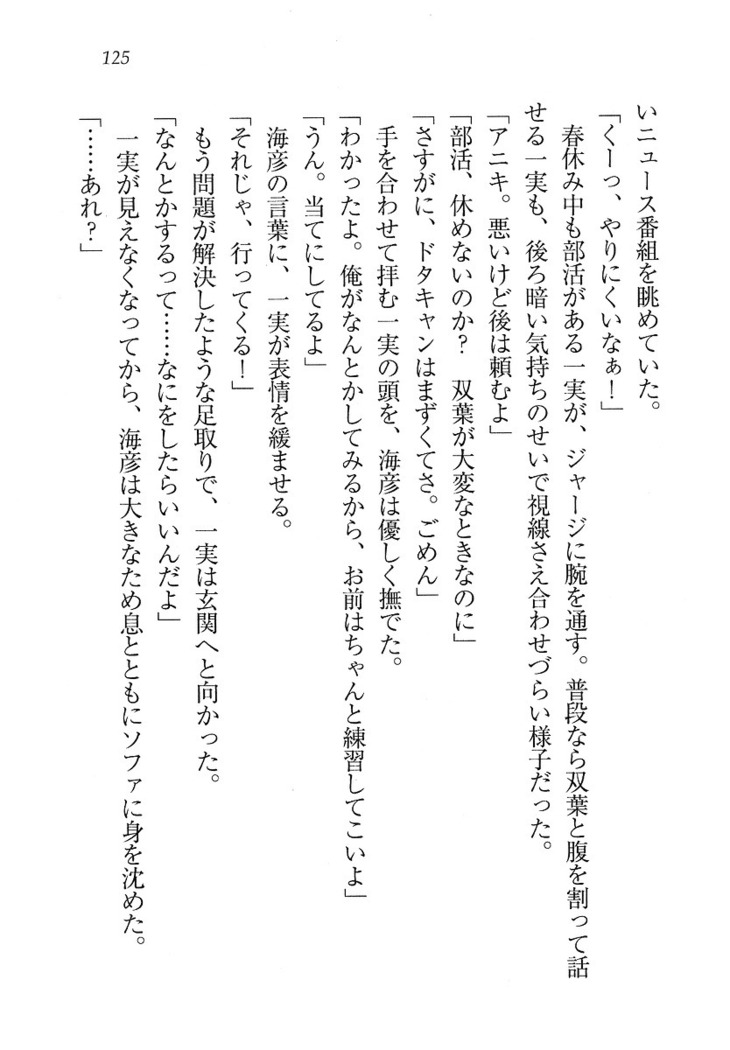 125
いニュース番組を眺めていた。
「くーっ、やりにくいなぁ！」
春休み中も部活がある一実が、ジャージに腕を通す。普段なら双葉と腹を割って話
せる一実も、後ろ暗い気持ちのせいで視線さえ合わせづらい様子だった。
「アニキ。悪いけど後は頼むよ」
「部活、休めないのか？　双葉が大変なときなのに」
「さすがに、ドタキャンはまずくてさ。ごめん」
手を合わせて拝む一実の頭を、海彦は優しく撫でた。
「わかったよ。俺がなんとかしてみるから、お前はちゃんと練習してこいよ」
「うん。当てにしてるよ」
海彦の言葉に、一実が表情を緩ませる。
「それじゃ、行ってくる！」
もう問題が解決したような足取りで、一実は玄関へと向かった。
「なんとかするって……なにをしたらいいんだよ」
一実が見えなくなってから、海彦は大きなため息とともにソファに身を沈めた。
「……あれ？」